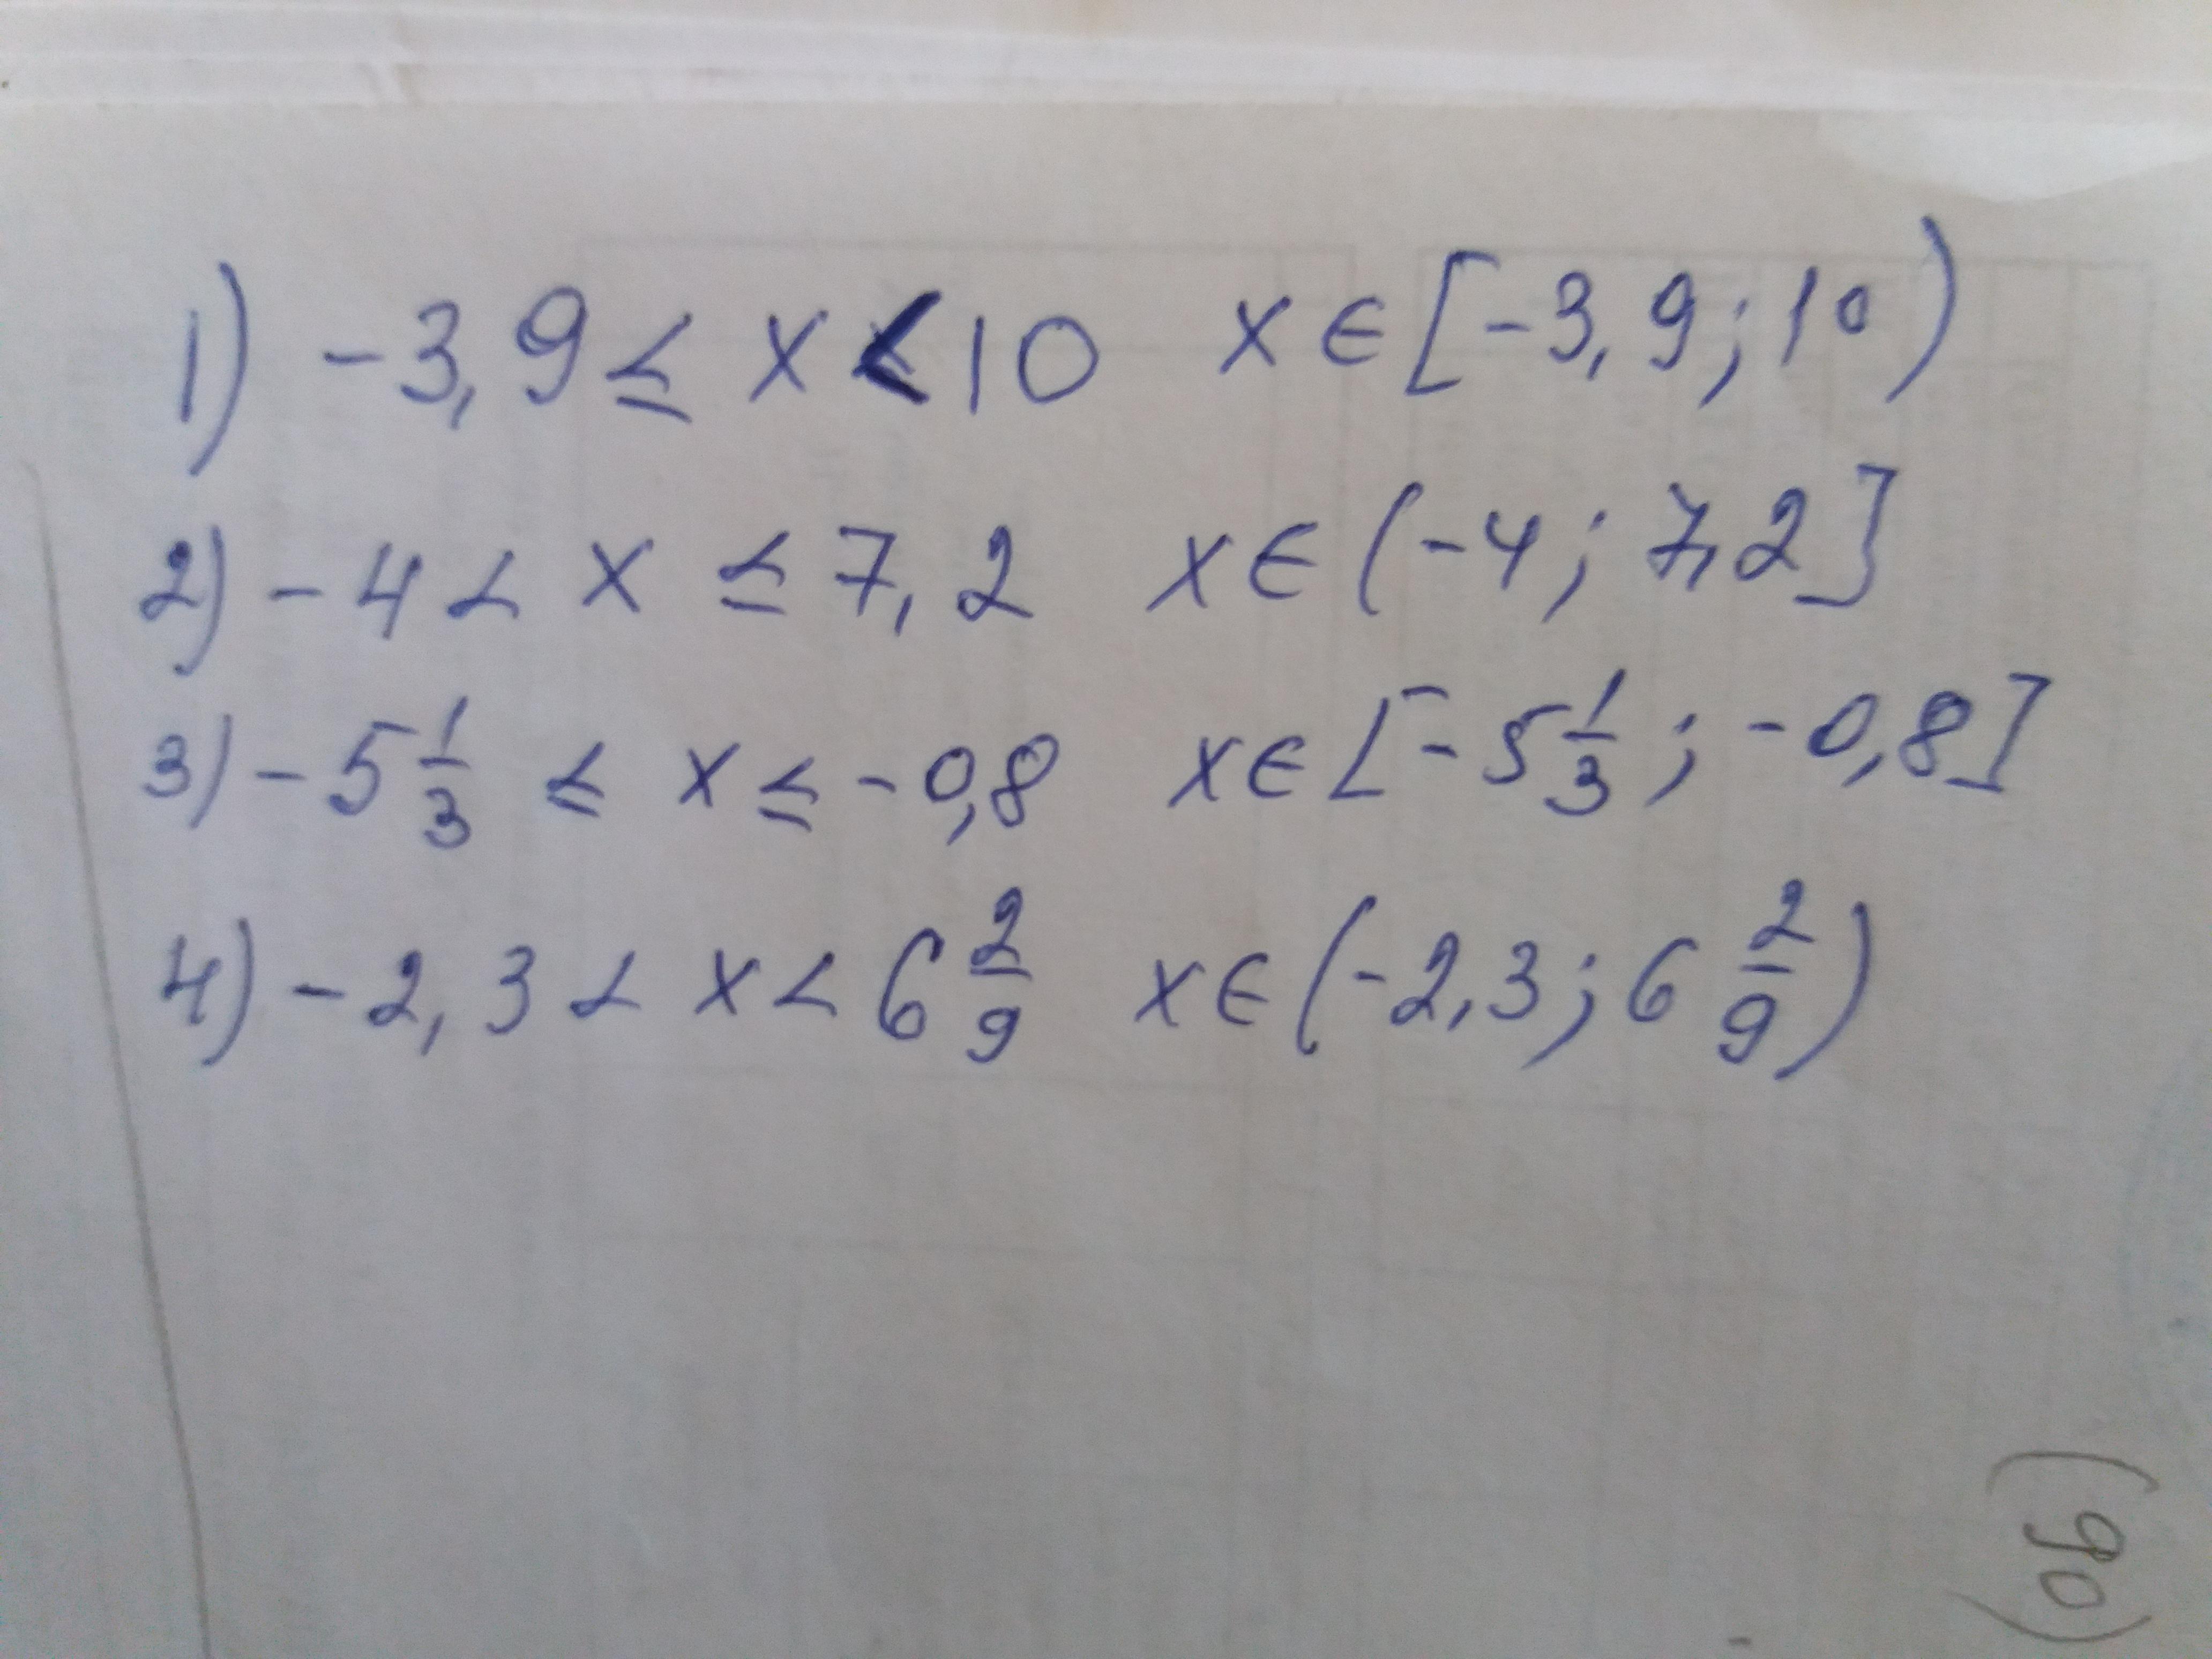 1) -3,9 ≤ x < 10 x ∈ [-3,9; 10)
2) -4 < x ≤ 7,2 x ∈ (-4; 7,2]
3) -5 1/3 ≤ x ≤ -0,8 x ∈ [-5 1/3; -0,8]
4) -2,3 < x < 6 2/9 x ∈ (-2,3; 6 2/9)
(90)